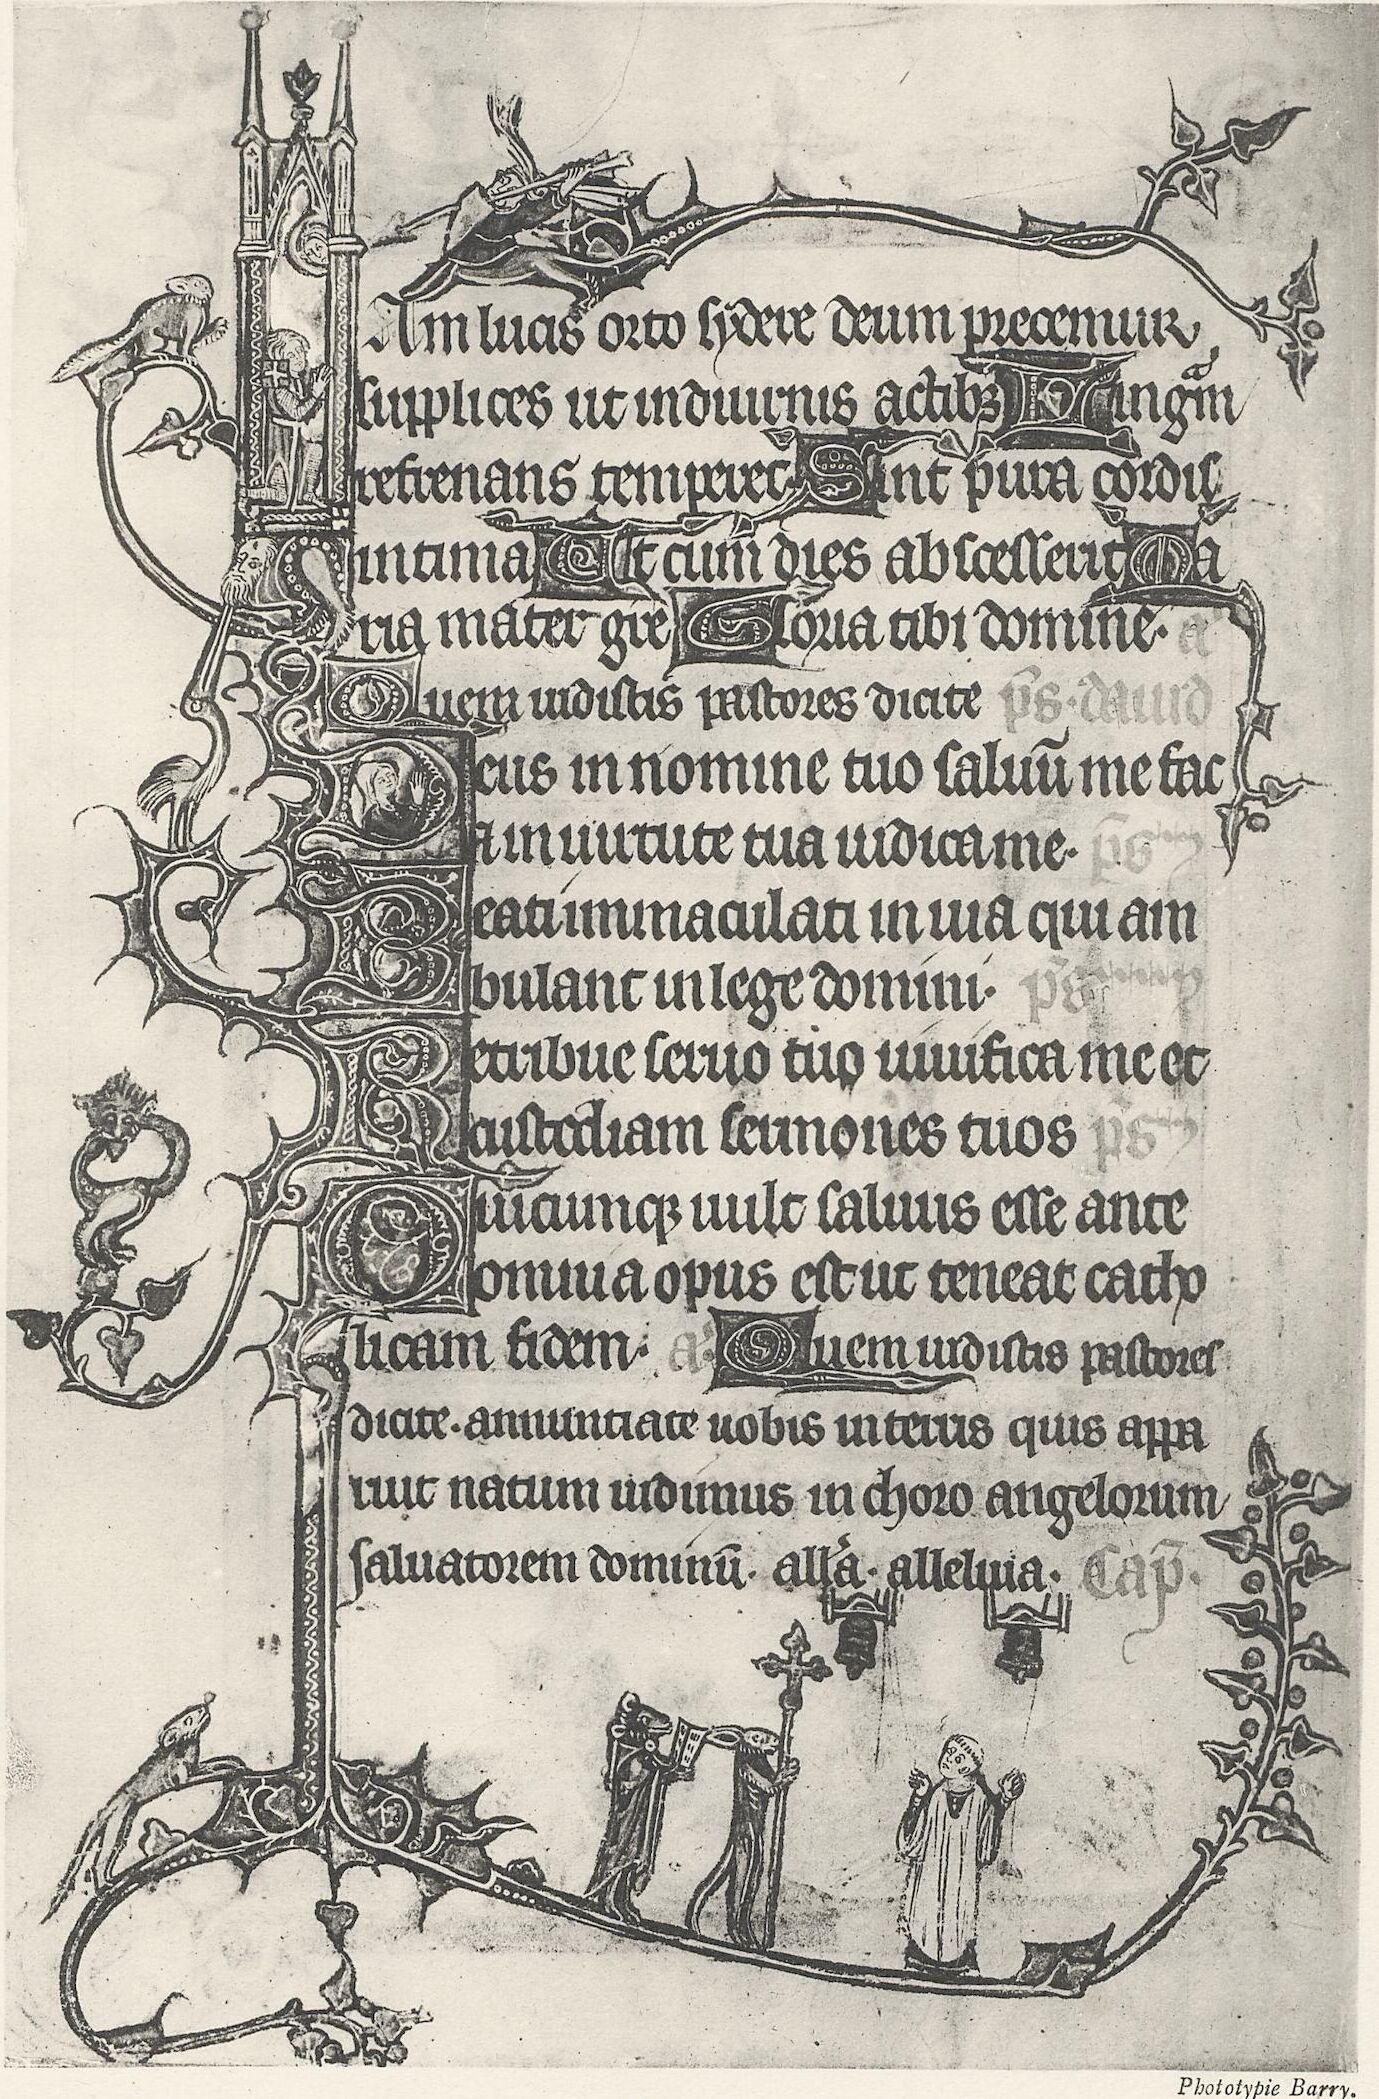 Am lucis orto sydere deum precemur
supplices ut in diurnis actibꝫ Lingᵃm
refrenans temperet. Sint pura cordis
intima Ut cum dies abscesserit Ma
ria mater gr̄e Gloria tibi domine. a
Quem uidistis pastores dicite p̄s. dauid
eus in nomine tuo saluū me fac
in uirtute tua iudica me. p̄s
Beati immaculati in uia qui am
bulant in lege domini. p̄s
Retribue seruo tuo uiuifica me et
custodiam sermones tuos p̄s
Quicunqꝫ uult saluus esse ante
omnia opus est ut teneat catho
licam fidem. a. Quem uidistis pastores
dicite. annuntiate uobis in terris quis appa
ruit natum uidimus in choro angelorum
saluatorem dominū. all'a. alleluia. Cap̄.
Phototypie Barry.